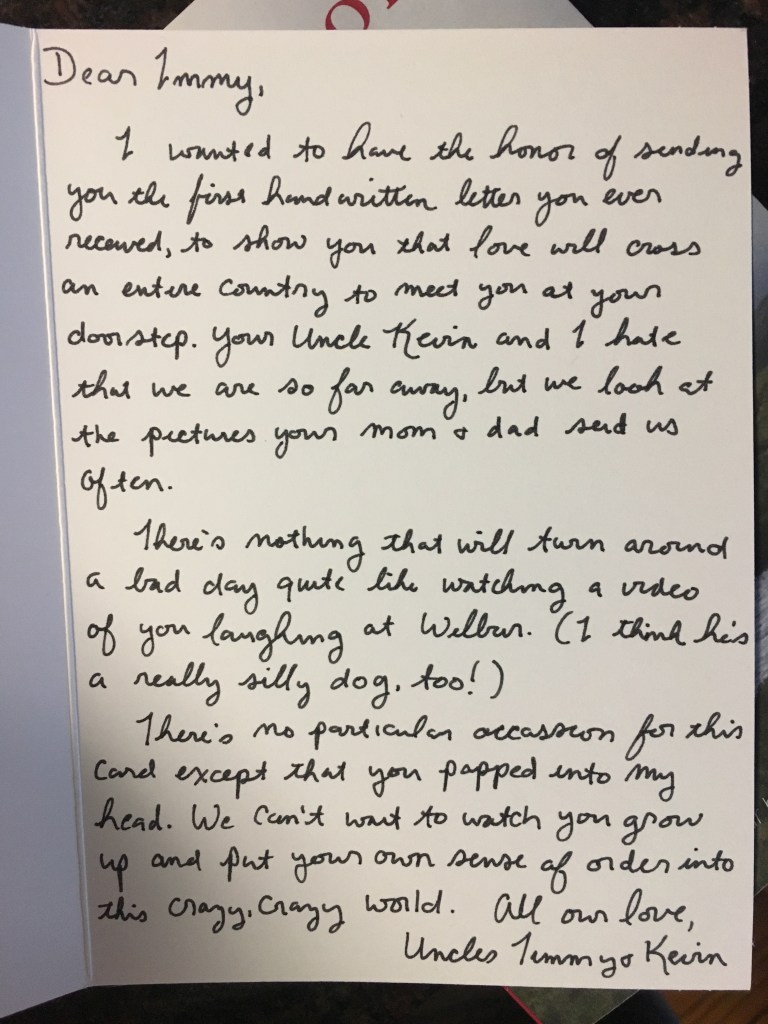 Dear Immy,
I wanted to have the honor of sending
you the first handwritten letter you ever
received, to show you that love will cross
an entire country to meet you at your
doorstep. Your Uncle Kevin and I hate
that we are so far away, but we look at
the pictures your mom & dad send us
often.
There's nothing that will turn around
a bad day quite like watching a video
of you laughing at Wilbur. (I think he's
a really silly dog, too!)
There's no particular occassion for this
card except that you popped into my
head. We can't wait to watch you grow
up and put your own sense of order into
this crazy, crazy world. All our love,
Uncles Timmy & Kevin